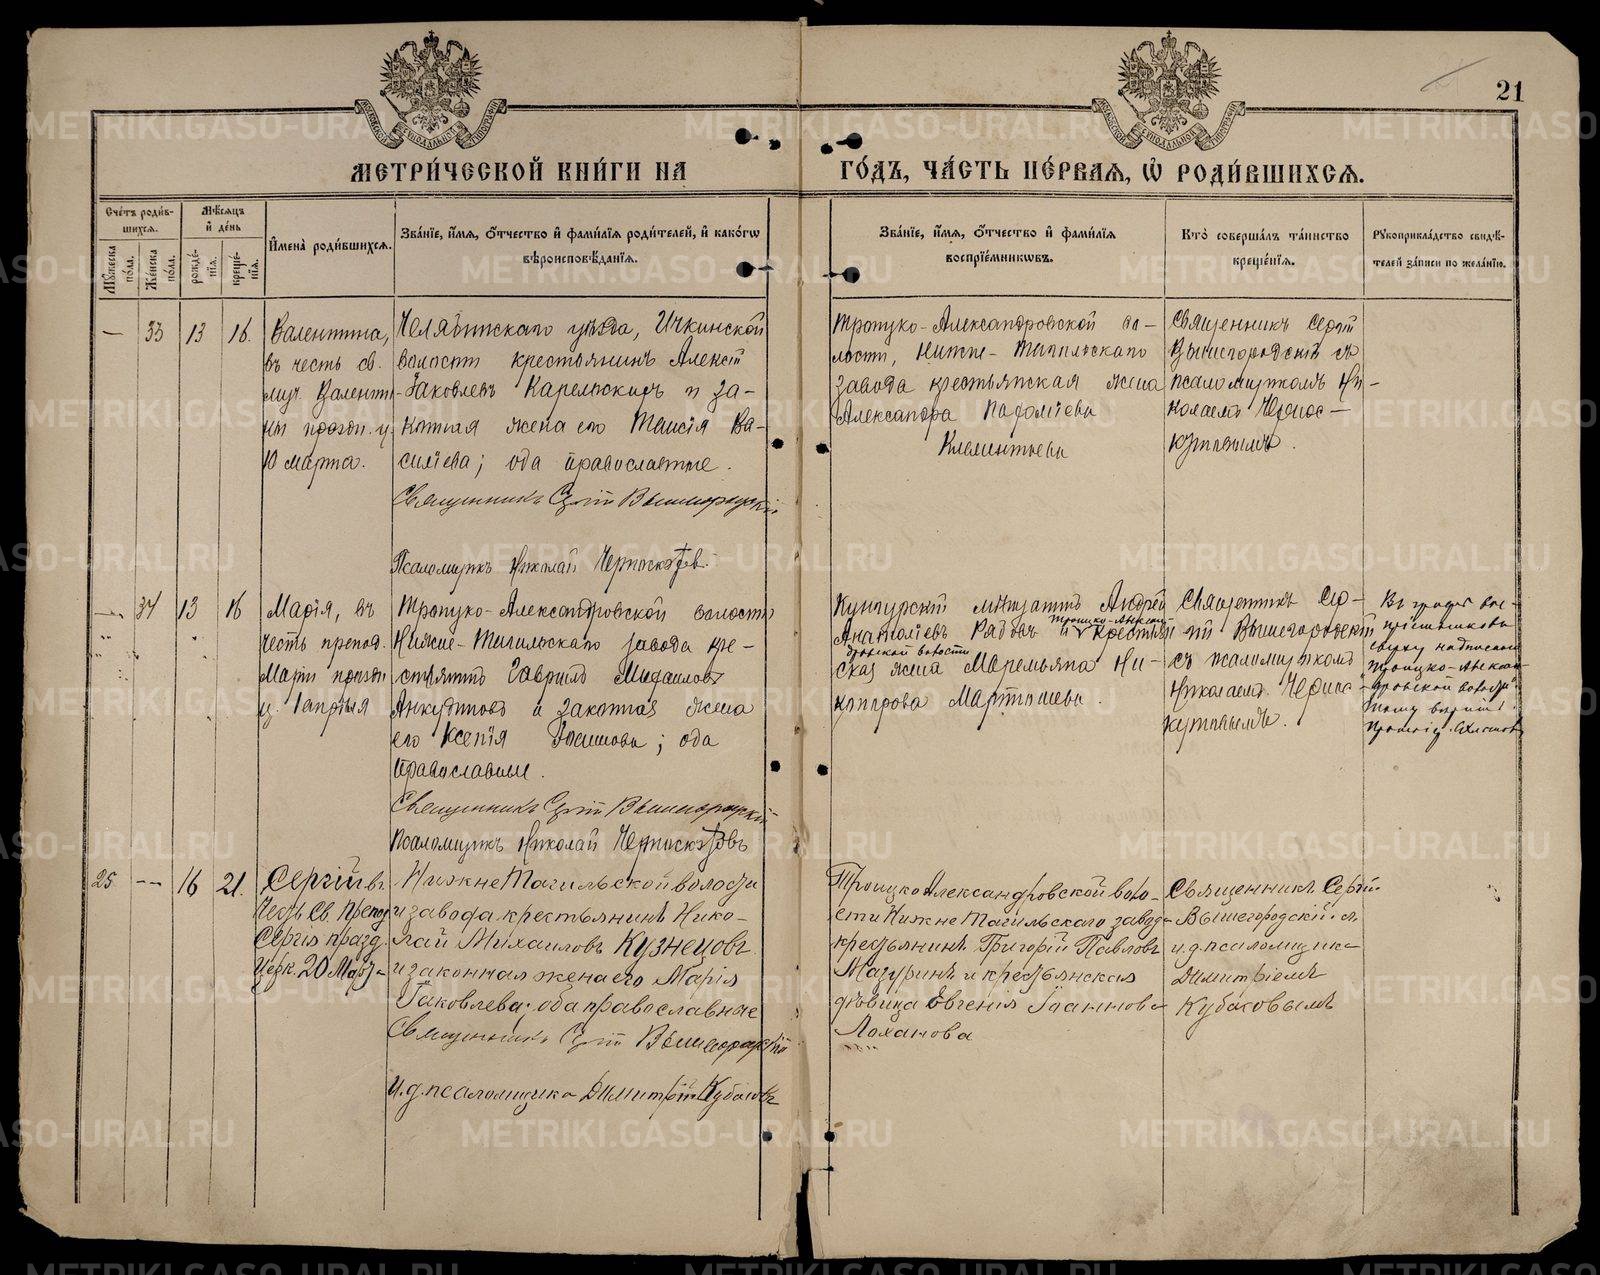 21
МЕТРИЧЕСКОЙ КНИГИ НА ГОДЪ, ЧАСТЬ ПЕРВАЯ, Ѡ РОДИВШИХСЯ.
Счетъ родив-
шихся.
Мужеска пола.
Женска пола.
Мѣсяцъ
и день
рожде-
нія.
креще-
нія.
Имена родившихся.
Званіе, имя, отчество и фамилія родителей, и какогѡ
вѣроисповѣданія.
Званіе, имя, отчество и фамилія
воспріемникωвъ.
Кто совершалъ таинство
крещенія.
Рукоприкладство свидѣ-
телей записи по желанію.
— 33 13 16.
Валентина,
въ честь св.
муч. Валенти-
ны празд. ц.
10 марта.
Челябинскаго уѣзда, Ичкинской
волости крестьянинъ Алексій
Іаковлевъ Карельскихъ и за-
конная жена его Таисія Ва-
силіева; оба православные.
Священникъ Сергій Вышегородскій
Псаломщикъ Николай Черноскутовъ
Троицко-Александровской во-
лости, Нижне-Тагильскаго
завода крестьянская жена
Александра
Клементьева
Священникъ Сергій
Вышегородскій съ
псаломщикомъ Ни-
колаемъ Чернос-
кутовымъ.
— 34 13 16
Марія, въ
честь препод.
Маріи празд.
ц. 1 апрѣля
Троицко-Александровской волости
Нижне-Тагильскаго завода кре-
стьянинъ Гавріилъ Михаиловъ
Анкудиновъ и законная жена
его Ксенія; оба
православные.
Священникъ Сергій Вышегородскій
Псаломщикъ Николай Черноскутовъ
Кунгурскій мѣщанинъ Андрей
Анатоліевъ Рядовъ и крестьян-
Троицко-Алексан-
дровской волости
ская жена Маремьяна Ни-
канорова Мартюшева.
Священникъ Сер-
гій Вышегородскій
съ псаломщикомъ
Николаемъ Чернос-
кутовымъ.
Въ графѣ вос-
пріемниковъ
сверху надписано
"Троицко-Алексан-
дровской волости"
тому вѣрить.
25 -- 16 21.
Сергій въ
честь св. Препод.
Сергія празд.
Церк. 20 Марта
НижнеТагильской волости
и завода крестьянинъ Нико-
лай Михаиловъ Кузнецовъ
и законная жена его Марія
Іаковлева; оба православные
Священникъ Сергій Вышегородскій
И.д. псаломщика Димитрій Кубасовъ
ТроицкоАлександровской воло-
сти НижнеТагильскаго завода
крестьянинъ Григорій Павловъ
Мазуринъ и крестьянская
дѣвица Евгенія Іоаннова
Лоханова
Священникъ Сергій
Вышегородскій съ
и.д. псаломщика
Димитріемъ
Кубасовымъ
METRIKI.GASO-URAL.RU